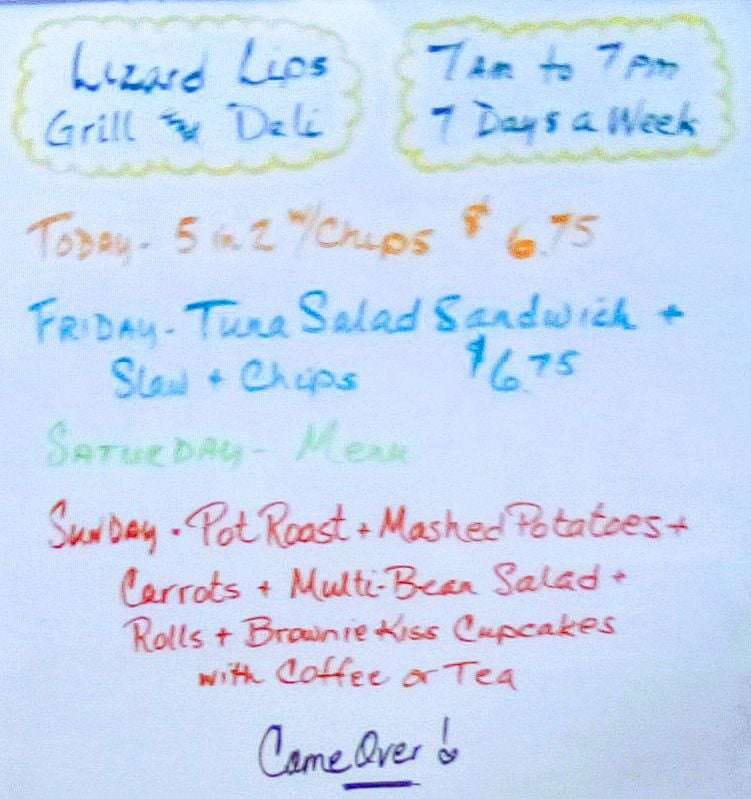 Lizard Lips
Grill and Deli
7 Am to 7 pm
7 Days a Week
TODAY- 5 in 2 w/Chips $6.75
FRIDAY- Tuna Salad Sandwich +
Slaw + Chips $6.75
SATURDAY- Menu
SUNDAY - Pot Roast + Mashed Potatoes +
Carrots + Multi-Bean Salad +
Rolls + Brownie Kiss Cupcakes
with Coffee or Tea
Come Over!